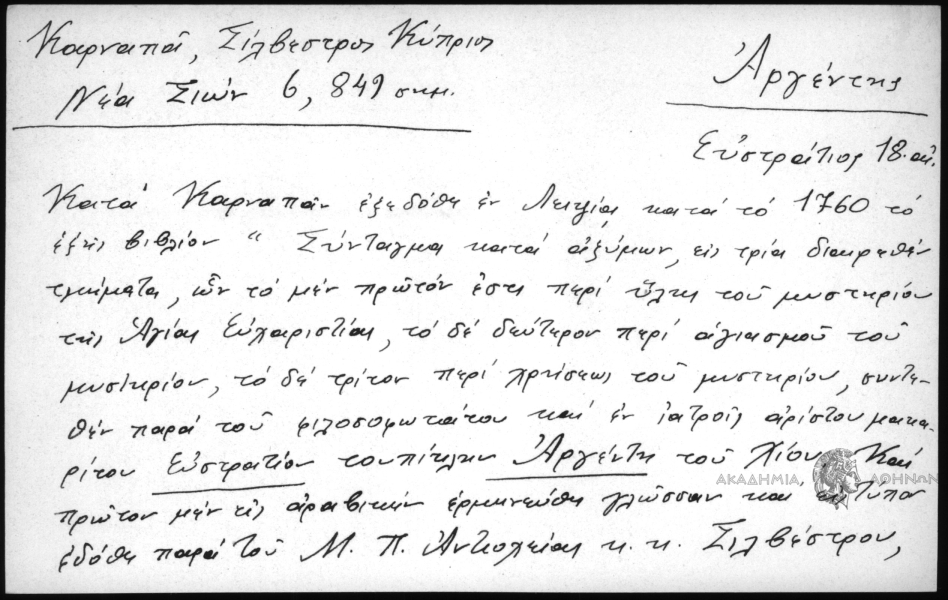 Καρναπᾶ, Σίλβεστρος Κύπριος
Νέα Σιών 6, 849 σημ.
Ἀργέντης
Εὐστράτιος 18. αἰ.
Κατά Καρναπᾶν ἐξεδόθη ἐν Λειψίᾳ κατά τό 1760 τό
ἑξῆς βιβλίον “ Σύνταγμα κατά ἀζύμων, εἰς τρία διαιρεθέν
τμήματα, ὧν τό μέν πρῶτόν ἐστι περί ὕλης τοῦ μυστηρίου
τῆς Ἁγίας Εὐχαριστίας, τό δέ δεύτερον περί ἁγιασμοῦ τοῦ
μυστηρίου, τό δέ τρίτον περί χρήσεως τοῦ μυστηρίου, συντε-
θέν παρά τοῦ φιλοσοφωτάτου καί ἐν ἰατροῖς ἀρίστου μακα-
ρίτου Εὐστρατίου τοὐπίκλην Ἀργέντη τοῦ Χίου. Καί
ΑΚΑΔΗΜΙΑ ΑΘΗΝΩΝ
πρῶτον μέν εἰς ἀραβικήν ἑρμηνεύθη γλῶσσαν καί ἐν τύποις
ἐδόθη παρά τοῦ Μ. Π. Ἀντιοχείας κ. κ. Σιλβέστρου,